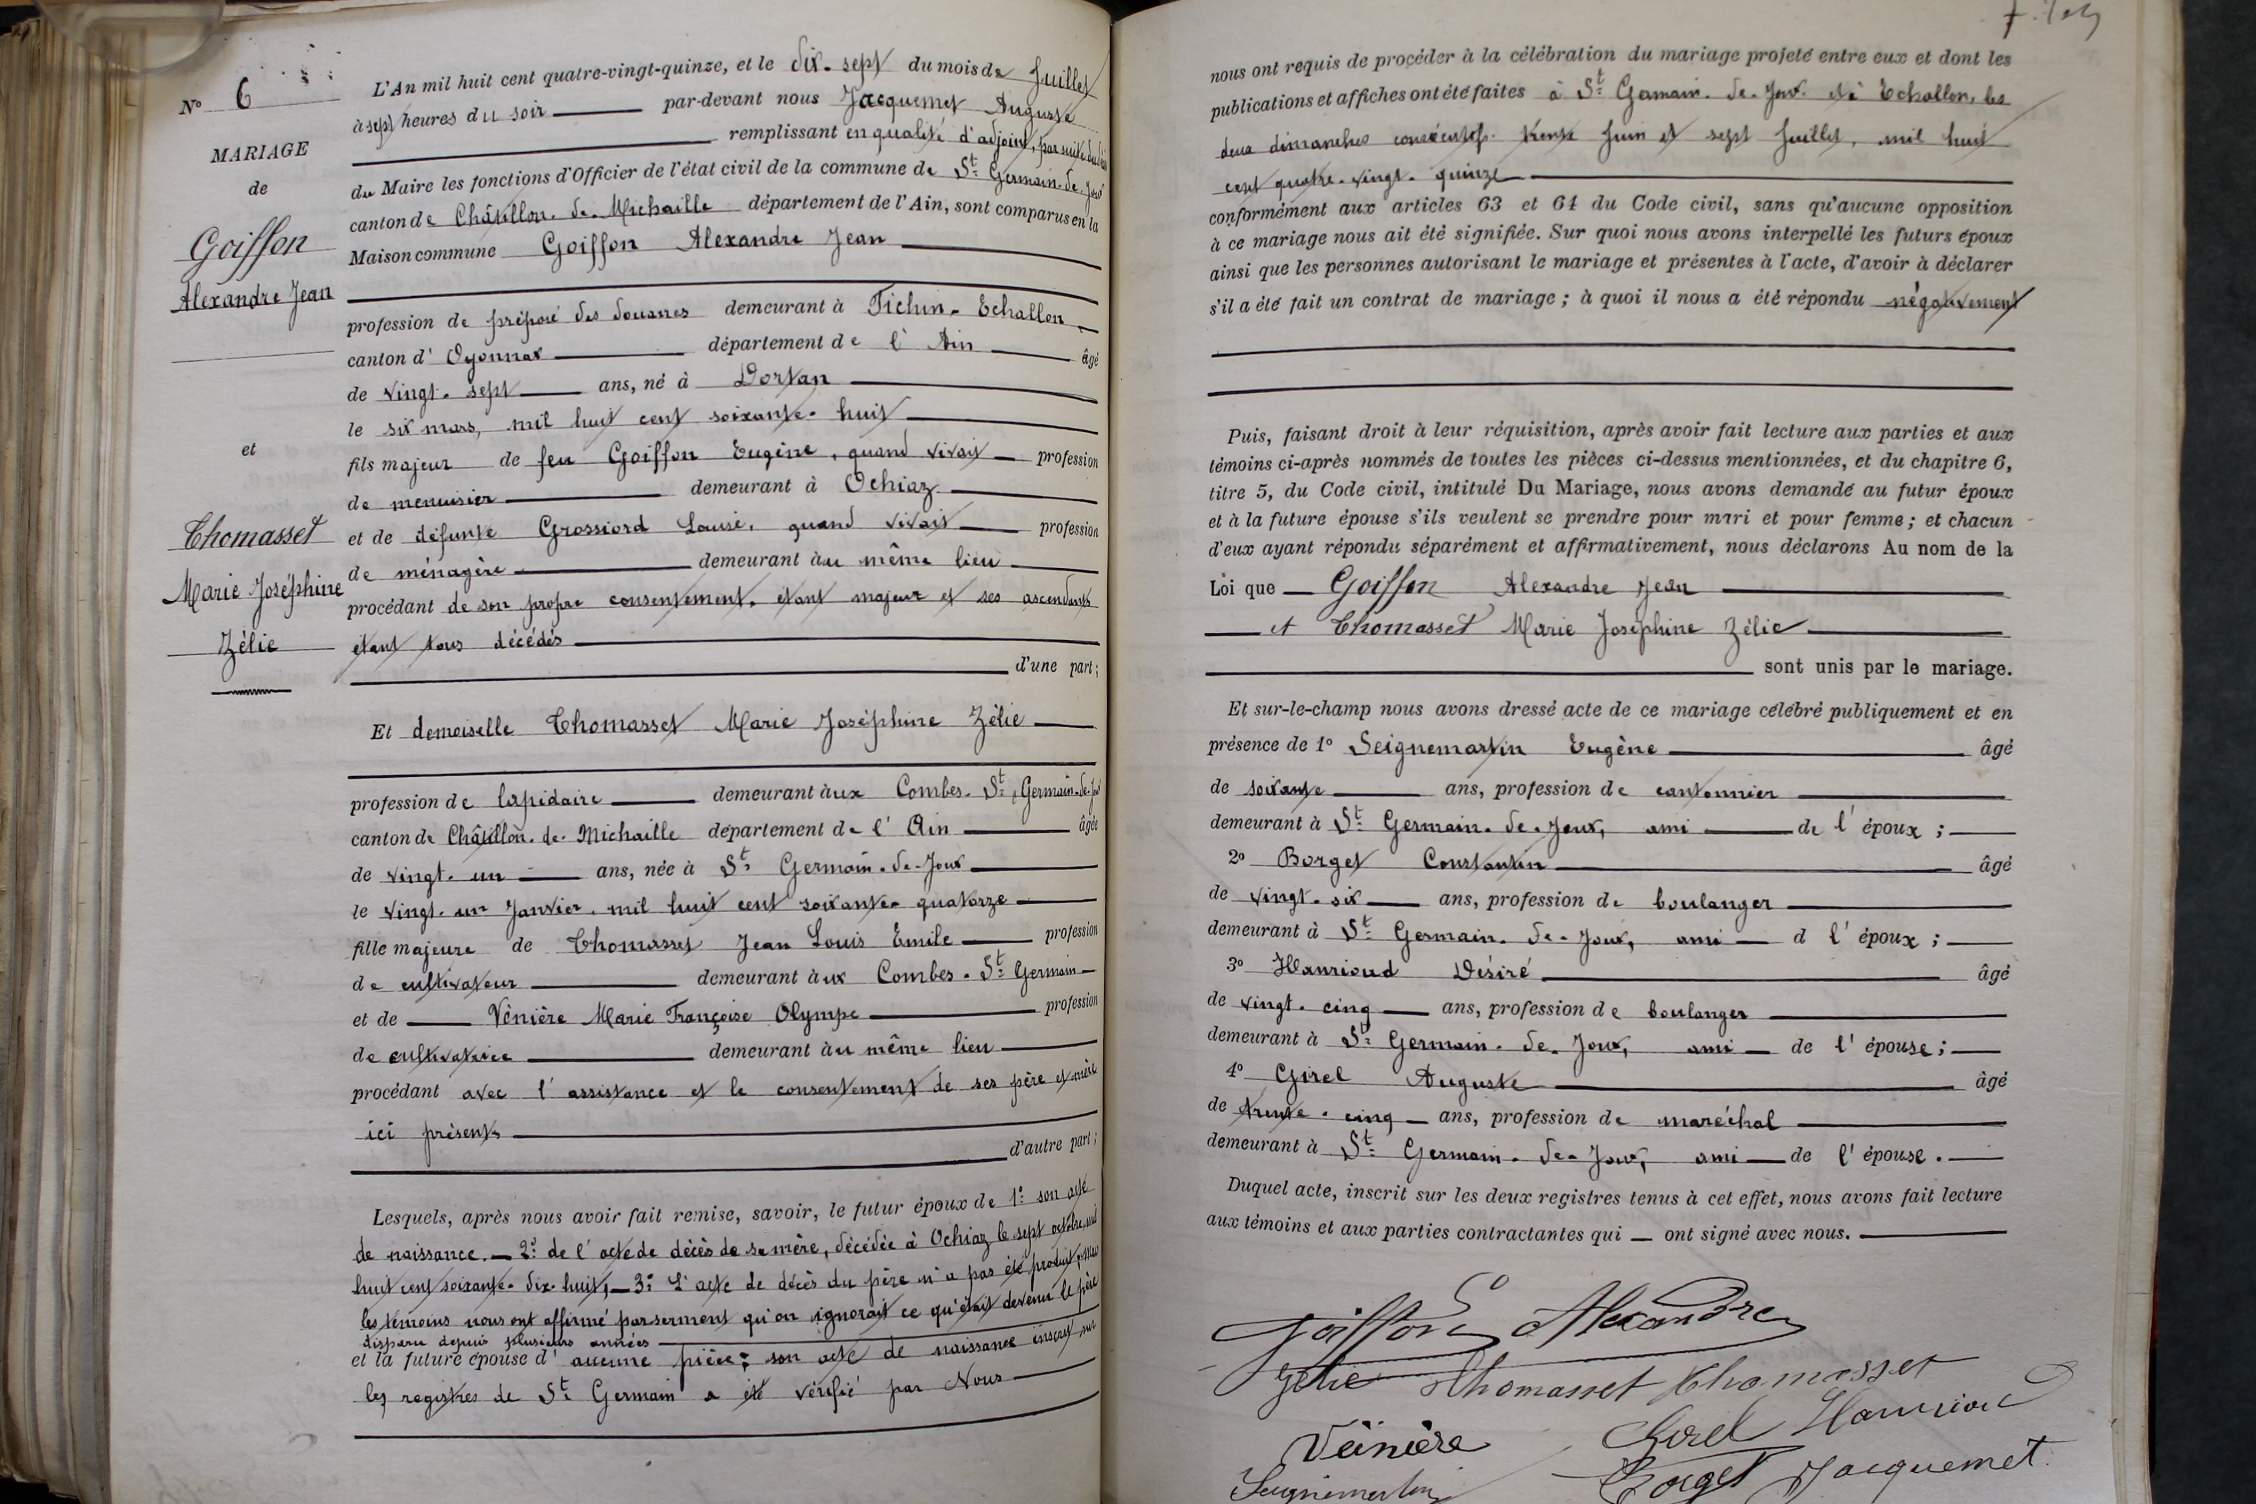 N° 6
MARIAGE
de
Goiffon
Alexandre Jean
et
Thomasset
Marie Joséphine
Zélie
L'An mil huit cent quatre-vingt-quinze, et le dix-sept du mois de Juillet
à sept heures du soir par-devant nous Jacquemet Auguste
remplissant en qualité d'adjoint, par suite du
du Maire les fonctions d'Officier de l'état civil de la commune de St Germain-de-Joux
canton de Châtillon-de-Michaille département de l'Ain, sont comparus en la
Maison commune Goiffon Alexandre Jean
profession de préposé des douanes demeurant à Echallon
canton d'Oyonnax département de l'Ain âgé
de vingt-sept ans, né à Dortan
le six mars, mil huit cent soixante-huit
fils majeur de feu Goiffon Eugène, quand vivait profession
de menuisier demeurant à Ochiaz
et de défunte Grossiord Louise, quand vivait profession
de ménagère demeurant au même lieu
procédant de son propre consentement, étant majeur et ses ascendants
étant tous décédés
d'une part;
Et demoiselle Thomasset Marie Joséphine Zélie
profession de lapidaire demeurant aux Combes-St Germain-de-Joux
canton de Châtillon-de-Michaille département de l'Ain âgée
de vingt-un ans, née à St Germain-de-Joux
le vingt-un Janvier, mil huit cent soixante-quatorze
fille majeure de Thomasset Jean Louis Emile profession
de cultivateur demeurant aux Combes-St Germain
et de Vénière Marie Françoise Olympe profession
de cultivatrice demeurant au même lieu
procédant avec l'assistance et le consentement de ses père et mère
ici présents
d'autre part;
Lesquels, après nous avoir fait remise, savoir, le futur époux de 1° son acte
de naissance.— 2° de l'acte de décès de sa mère, décédée à Ochiaz le sept octobre, mil
huit cent soixante-dix-huit,— 3° L'acte de décès du père n'a pas été produit, mais
les témoins nous ont affirmé par serment qu'on ignorait ce qu'était devenu le père
disparu depuis plusieurs années
et la future épouse d'aucune pièce; son acte de naissance inscrit sur
les registres de St Germain a été vérifié par Nous
nous ont requis de procéder à la célébration du mariage projeté entre eux et dont les
publications et affiches ont été faites à St Germain-de-Joux et à Echallon, les
deux dimanches consécutifs trente Juin et sept Juillet, mil huit
cent quatre-vingt-quinze
conformément aux articles 63 et 64 du Code civil, sans qu'aucune opposition
à ce mariage nous ait été signifiée. Sur quoi nous avons interpellé les futurs époux
ainsi que les personnes autorisant le mariage et présentes à l'acte, d'avoir à déclarer
s'il a été fait un contrat de mariage; à quoi il nous a été répondu négativement
Puis, faisant droit à leur réquisition, après avoir fait lecture aux parties et aux
témoins ci-après nommés de toutes les pièces ci-dessus mentionnées, et du chapitre 6,
titre 5, du Code civil, intitulé Du Mariage, nous avons demandé au futur époux
et à la future épouse s'ils veulent se prendre pour mari et pour femme; et chacun
d'eux ayant répondu séparément et affirmativement, nous déclarons Au nom de la
Loi que Goiffon Alexandre Jean
et Thomasset Marie Joséphine Zélie
sont unis par le mariage.
Et sur-le-champ nous avons dressé acte de ce mariage célébré publiquement et en
présence de 1° Seignemartin Eugène âgé
de soixante ans, profession de cantonnier
demeurant à St Germain-de-Joux, ami de l'époux;
2° Borget Constantin âgé
de vingt-six ans, profession de boulanger
demeurant à St Germain-de-Joux, ami d l'époux;
3° Hanrioud Désiré âgé
de vingt-cinq ans, profession de boulanger
demeurant à St Germain-de-Joux, ami de l'épouse;
4° Girel Auguste âgé
de trente-cinq ans, profession de maréchal
demeurant à St Germain-de-Joux, ami de l'épouse.
Duquel acte, inscrit sur les deux registres tenus à cet effet, nous avons fait lecture
aux témoins et aux parties contractantes qui — ont signé avec nous.
Goiffon Alexandre
Zélie Thomasset Thomasset
Vénière Girel Hanrioud
Seignemartin Borget Jacquemet